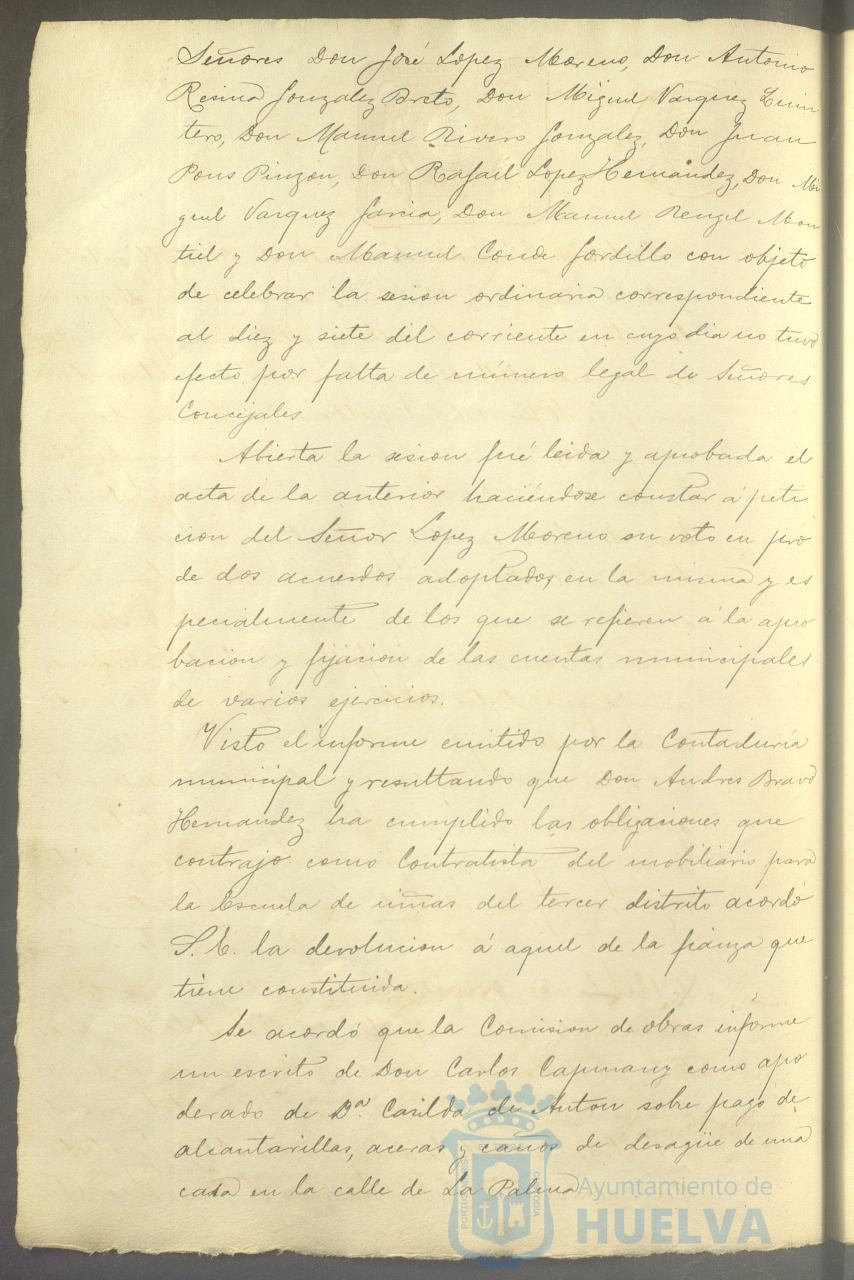 Señores Don José Lopez Moreno, Don Antonio
Resina Gonzalez Breto, Don Miguel Vazquez Quin
tero, Don Manuel Rivero Gonzalez, Don Juan
Pons Pinzon, Don Rafael Lopez Hernández, Don Mi
guel Vazquez Garcia, Don Manuel Rengel Mon
tiel y Don Manuel Conde Gordillo con objeto
de celebrar la sesion ordinaria correspondiente
al diez y siete del corriente en cuyo dia no tuvo
efecto por falta de número legal de Señores
Concejales.
Abierta la sesion fué leida y aprobada el
acta de la anterior haciéndose constar á peti
cion del Señor Lopez Moreno su voto en pró
de dos acuerdos adoptados, en la misma y es
pecialmente de los que se refieren á la apro
bacion y fijacion de las cuentas municipales
de varios ejercicios.
Visto el informe emitido por la Contaduría
municipal y resultando que Don Andres Bravo
Hernandez ha cumplido las obligaciones que
contrajo como Contratista del mobiliario para
la Escuela de niñas del tercer distrito acordó
S. E. la devolucion á aquel de la fianza que
tiene constituida.
Se acordó que la Comision de obras informe
un escrito de Don Carlos Capmany como apo
derado de Dª. Casilda de Anton sobre pago de
alcantarillas, aceras y caños de desagüe de una
casa en la calle de La Palma
Ayuntamiento de
HUELVA